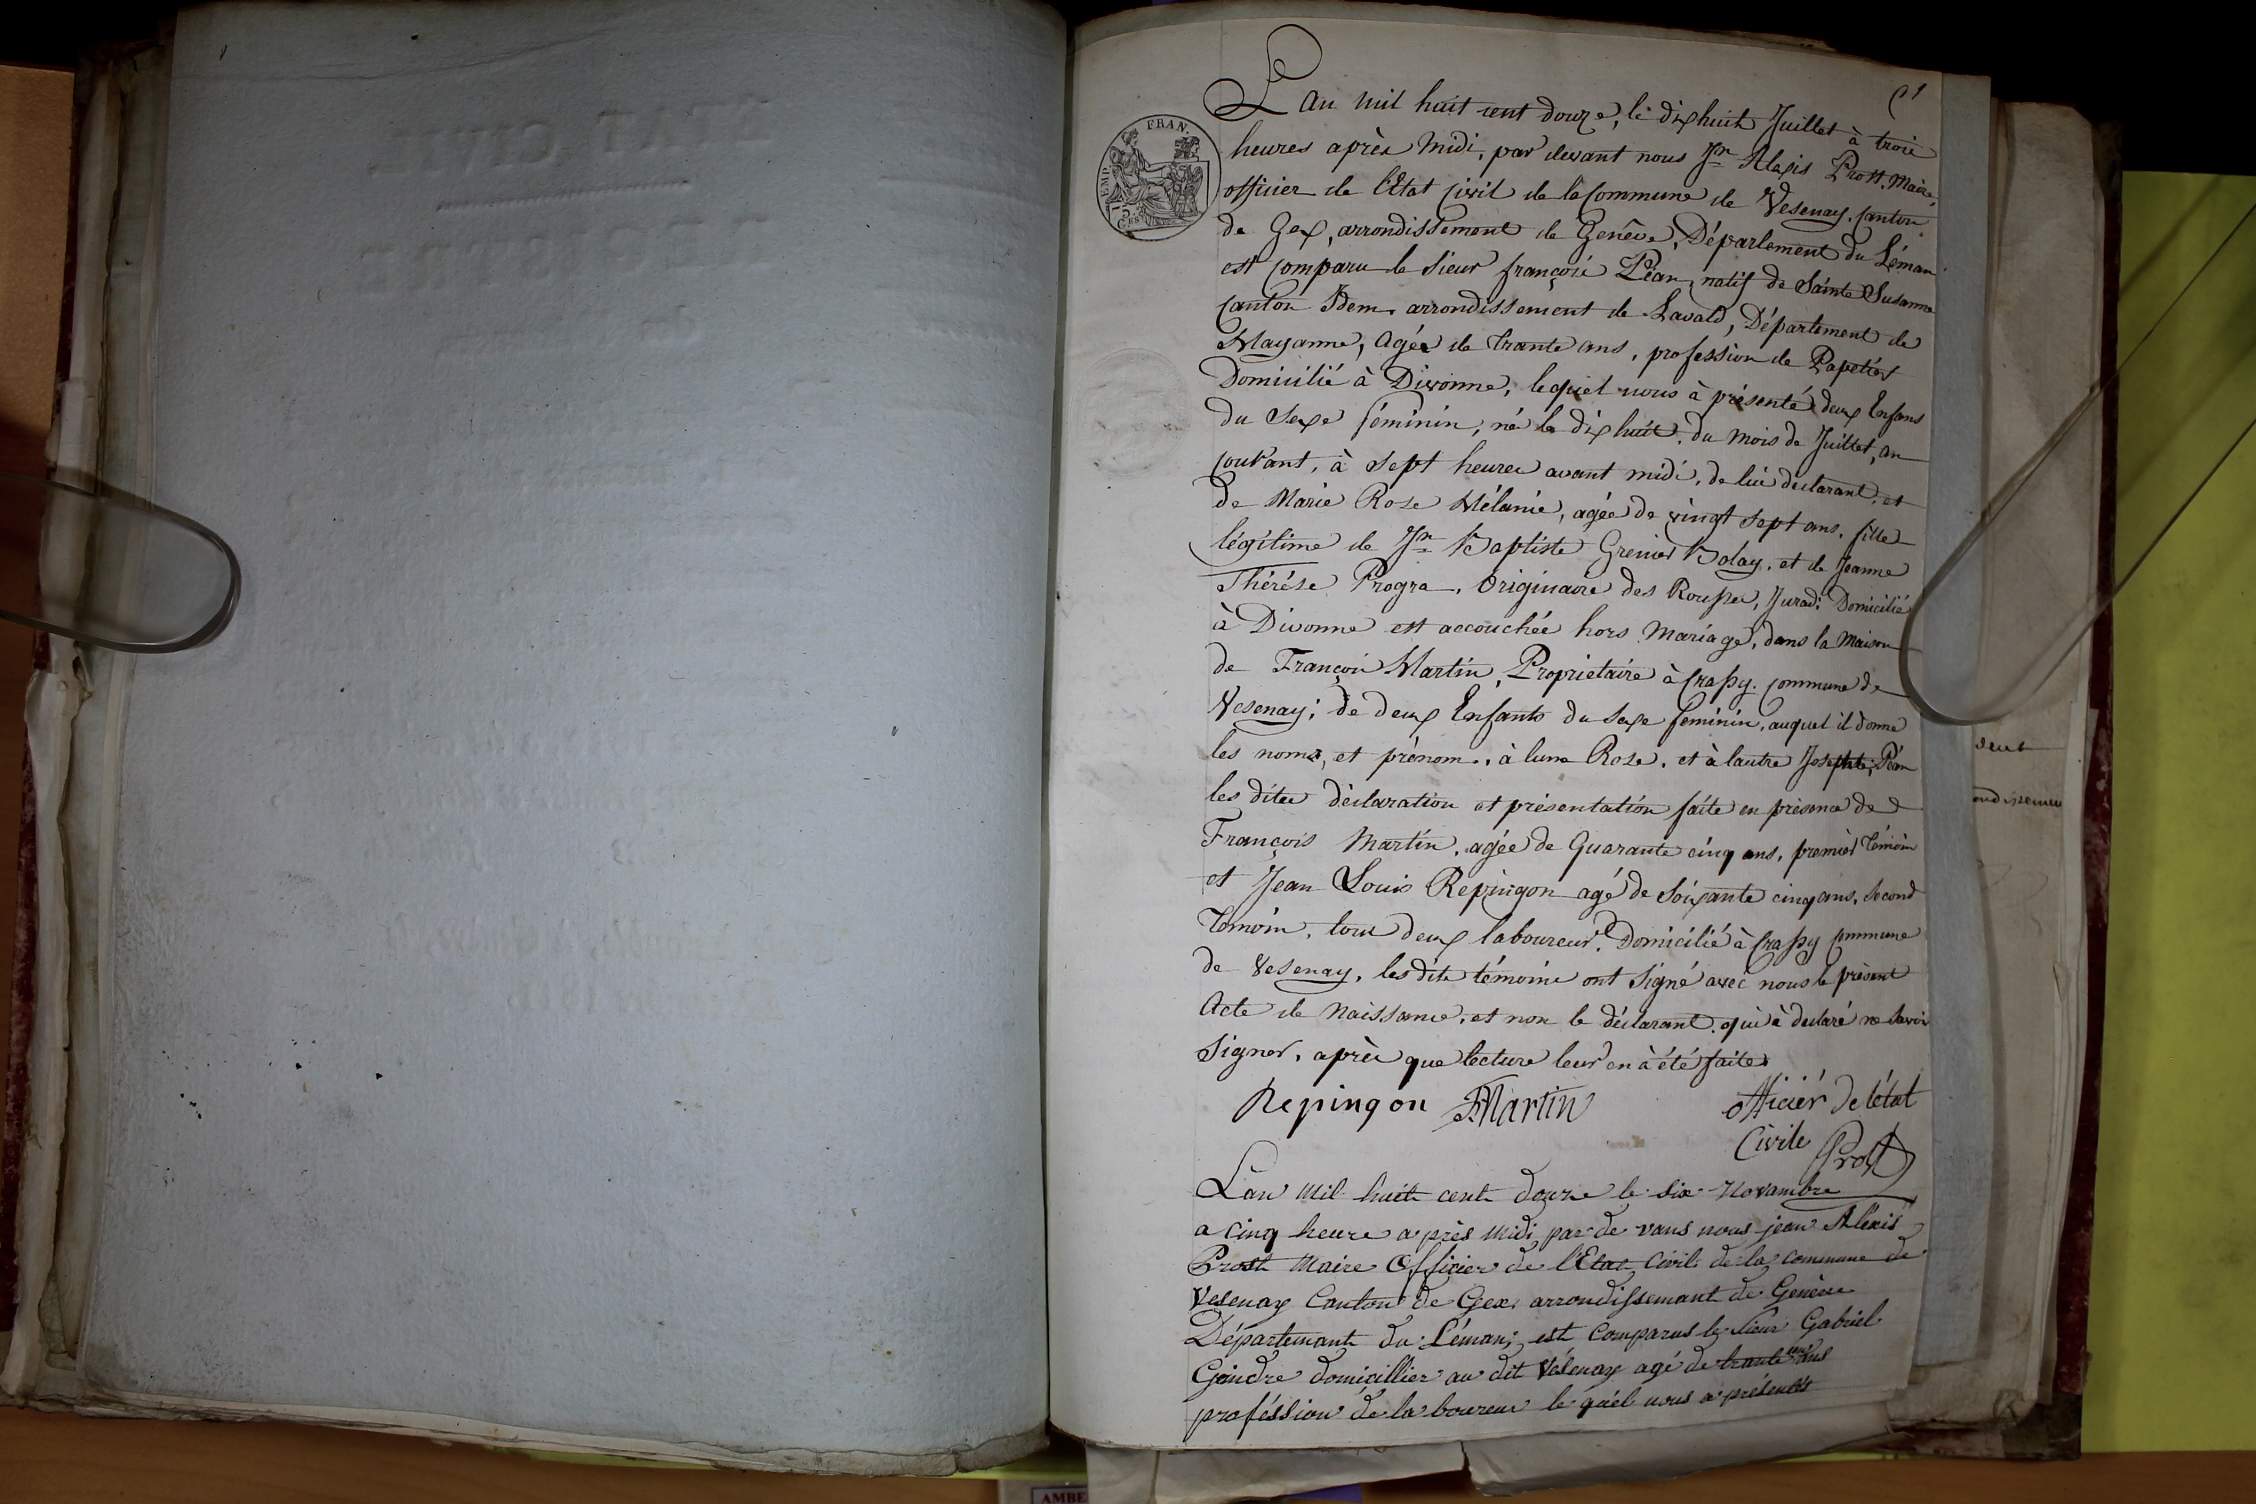 21
L'an mil huit cent douze, le dixhuit Juillet à trois
heures après midi, par devant nous Jn Alexis Prost, Maire,
officier de l'Etat civil de la Commune de Vesenay, Canton
de Gex, arrondissement de Genêve, Département du Léman
est comparu le Sieur françois Péan, natif de Sainte Susanne
Canton Idem, arrondissement de Lavald, Département de
Mayanne, Agée de trante ans, profession de Papetier
Domicilié à Divonne, lequel nous à présenté deux Enfans
du Sexe féminin, né le dixhuit, du mois de Juillet, an
courant, à sept heures avant midi, de lui déclarant, et
de Marie Rose Mélanie, agée de vingt sept ans, fille
légitime de Jn Baptiste Grenier Bolay, et de Jeanne
Thérése Progra, Originaire des Rousses, Jura. Domicilié
à Divonne est accouchée hors Mariage, dans la Maison
de François Martin, Proprietaire à Crassy, commune de
Vesenay; de deux Enfants du sexe feminin, auquel il donne
les noms, et prénom, à lune Rose, et à lautre Josephte, Péan
les dites déclaration et présentation faite en présence de
François Martin, agée de Quarante cinq ans, premier témoin
et Jean Louis Repingon agé de Soixante cinq ans, second
témoin, tous deux laboureur, Domicilié à Crassy commune
de Vesenay, les dits témoins ont signé avec nous le présent
Acte de Naissance, et non le déclarant, qui à déclaré ne savoir
Signer, après que lecture leur en à été faite
Repingon FMartin officier de létat
Civile Prost
Lan mil huit cent douze le six Novambre
a cinq heure après midi par de vans nous jean Alexis
Prost Maire Officier de l'Etat Civil de la commune de
Vesenay Canton de Gex, arrondissemant de Genève
Départemant du Léman; est Comparus le sieur Gabriel
Gindre domicillier au dit Vésenay agé de trante ans
proféssion de la boureur le quél nous a présentés
EMP. FRAN.
AMBE